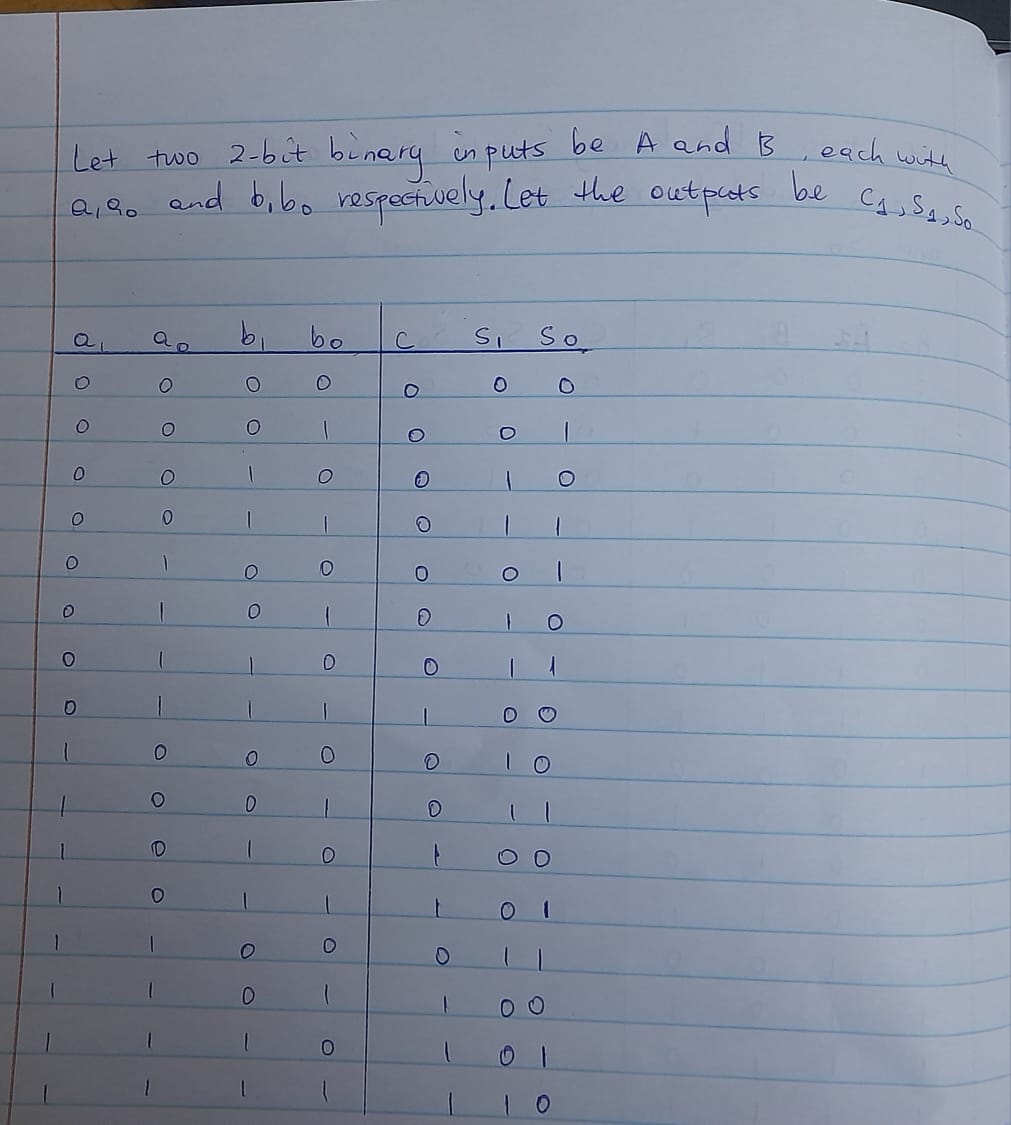 Let two 2-bit binary inputs be A and B, each with
a₁a₀ and b₁b₀ respectively. Let the outputs be C₁, S₁, S₀
a₁ a₀ b₁ b₀ C S₁ S₀
0 0 0 0 0 0 0
0 0 0 1 0 0 1
0 0 1 0 0 1 0
0 0 1 1 0 1 1
0 1 0 0 0 0 1
0 1 0 1 0 1 0
0 1 1 0 0 1 1
0 1 1 1 1 0 0
1 0 0 0 0 1 0
1 0 0 1 0 1 1
1 0 1 0 1 0 0
1 0 1 1 1 0 1
1 1 0 0 0 1 1
1 1 0 1 1 0 0
1 1 1 0 1 0 1
1 1 1 1 1 1 0